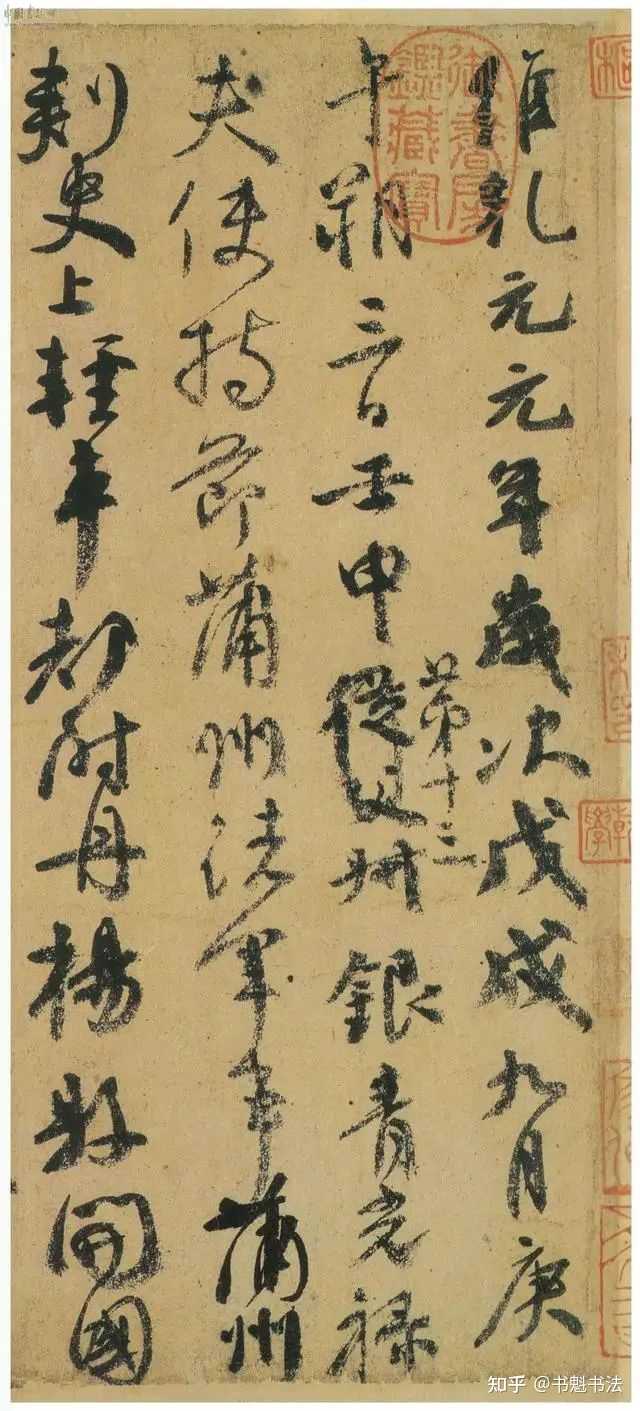 惟乾元元年歲次戊戌九月庚
午朔三日壬申從父叔銀青光祿
第十三
夫使持節蒲州諸軍事蒲州
刺史上輕車都尉丹楊縣開國
御書房鑑藏寶
乾學
知乎 @书魁书法